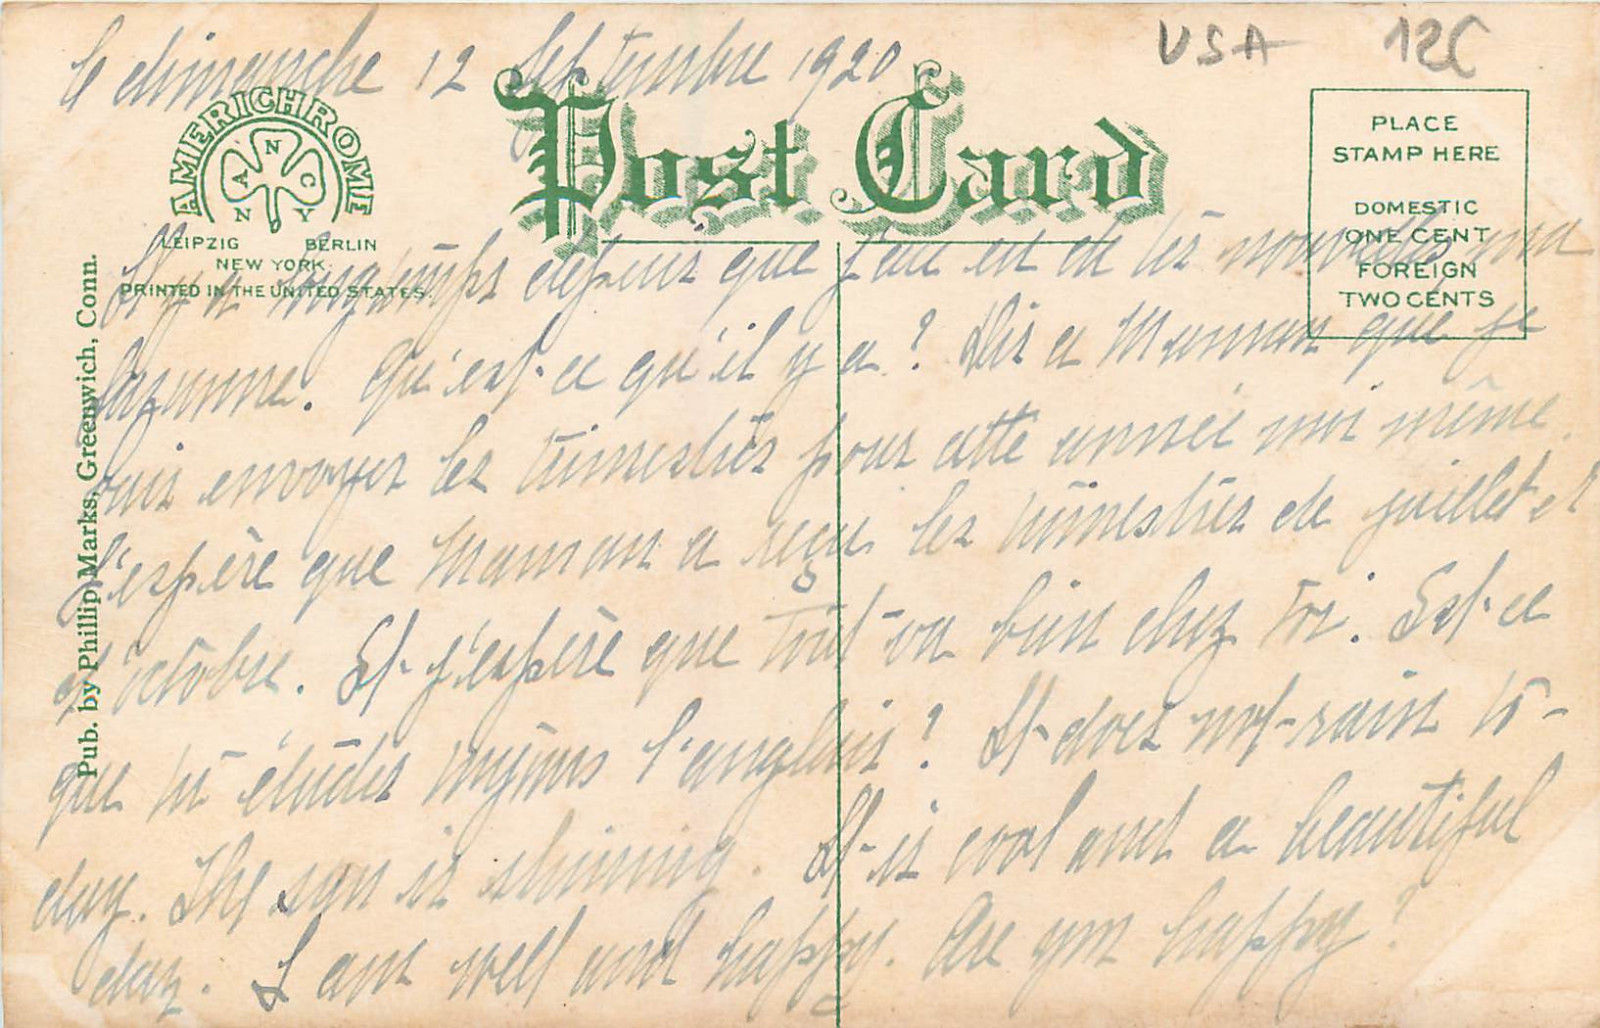 le dimanche 12 Septembre 1920
USA 12C
AMERICHROME
ANNC
N Y
LEIPZIG BERLIN
NEW YORK
PRINTED IN THE UNITED STATES.
Post Card
PLACE
STAMP HERE
DOMESTIC
ONE CENT
FOREIGN
TWO CENTS
Pub. by Phillip Marks, Greenwich, Conn.
Il y a longtemps depuis que j'aie eu de tes nouvelles ma
Suzanne. Qu'est-ce qu'il y a? Dis a Maman que je
vais envoyer les trimestres pour cette année moi même.
J'espère que Maman a reçu les trimestres de juillet et
d'octobre. Et j'espère que tout va bien chez toi. Est-ce
que tu étudies toujours l'anglais? It does not rain to-
day. The sun is shining. It is cool and a beautiful
day. I am well and happy. Are you happy?